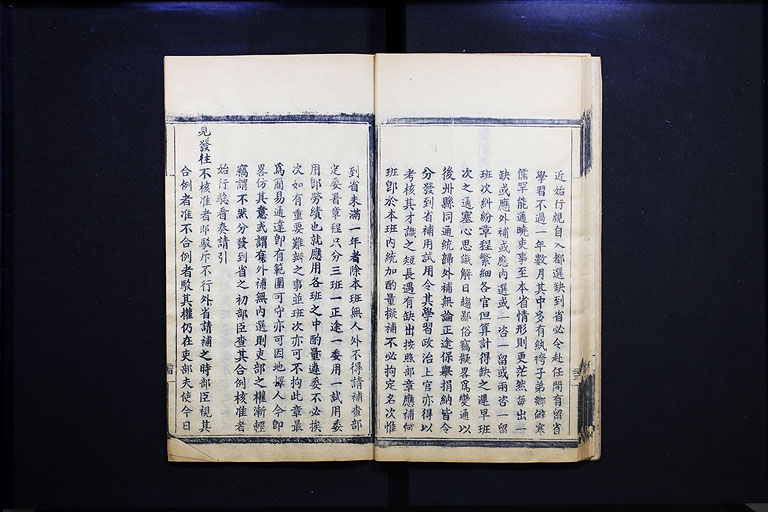 近始行親自入都選缺到省必令赴任間有留省
學習不過一年數月其中多有紈袴子弟鄉僻寒
儒罕能通曉吏事至本省情形則更茫然每出一
缺或應外補或應內選或一咨一留或兩咨一留
班次糾紛章程繁細各官但算計得缺之遲早班
次之通塞心思識解日趨鄙俗竊擬畧爲變通以
後州縣同通統歸外補無論正途保舉捐納皆令
分發到省補用試用令其學習政治上官亦得以
考核其才識之短長遇有缺出按照部章應補何
班卽於本班內統加酌量擬補不必拘定名次惟
到省未滿一年者除本班無人外不得請補查部
定委署章程只分三班一正途一委用一試用委
用卽勞績也就應用各班之中酌量遴委不必挨
次如有重要難辦之事並班次亦可不拘此章最
爲簡易通達卽有範圍可守亦可因地擇人今卽
畧仿其意或謂棄外補無內選則吏部之權漸輕
竊謂不然分發到省之初部臣查其合例核准者
始行奬看奏請引
見發往不核准者卽駁斥不行外省請補之時部臣視其
合例者准不合例者駁其權仍在吏部夫使今日